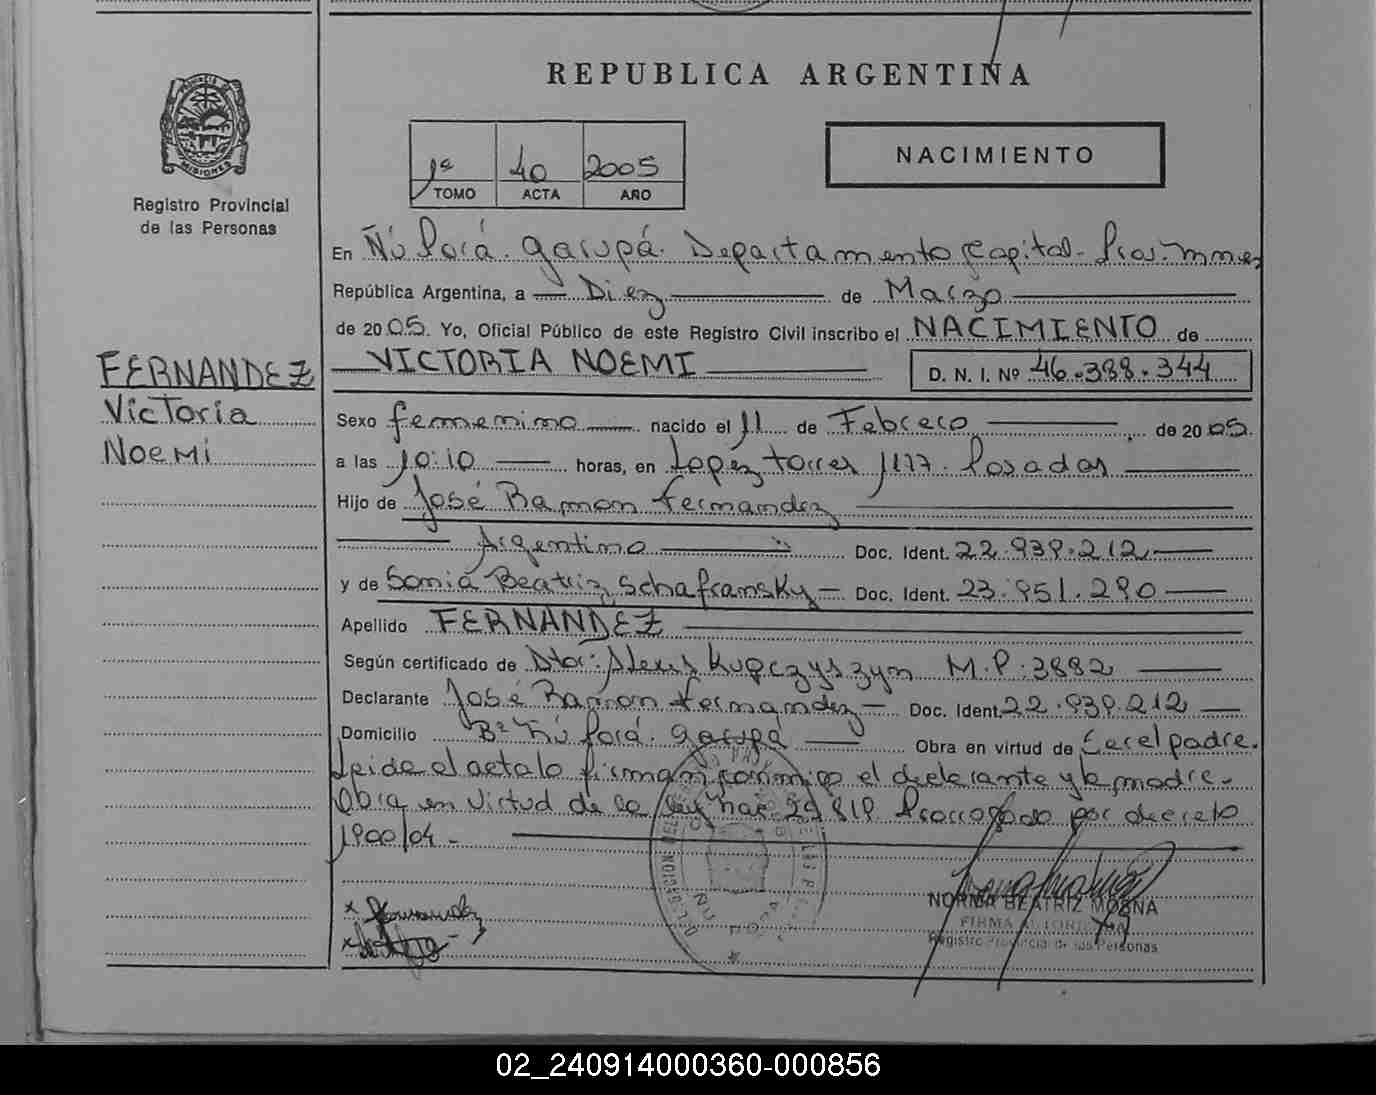 REPUBLICA ARGENTINA
MISIONES
Registro Provincial
de las Personas
1º 40 2005
TOMO ACTA AÑO
NACIMIENTO
En Ñú Porá. Garupá. Departamento Capital.
República Argentina, a Diez de Marzo
de 2005. Yo, Oficial Público de este Registro Civil inscribo el NACIMIENTO de
VICTORIA NOEMI D. N. I. Nº 46.388.344
FERNANDEZ
Victoria
Noemi
Sexo femenino nacido el 11 de Febrero de 2005.
a las 10:10 horas, en Lopez Torres 1177. Posadas
Hijo de José Ramon Fernandez
Argentino Doc. Ident. 22.939.212
y de Sonia Beatriz Schafransky Doc. Ident. 23.951.290
Apellido FERNANDEZ
Según certificado de Alexis Kupczyszyn M.P. 3882
Declarante José Ramon Fernandez Doc. Ident. 22.939.212
Domicilio Bº Ñú Porá. Garupá Obra en virtud de padre.
Leida el acta la firman conmigo el declarante y la madre.
Obra en virtud de la ley nac. Prorrogado por decreto
1900/04.
NORMA BEATRIZ
FIRMA AUTORIZADA
Registro Provincial de las Personas
02_240914000360-000856